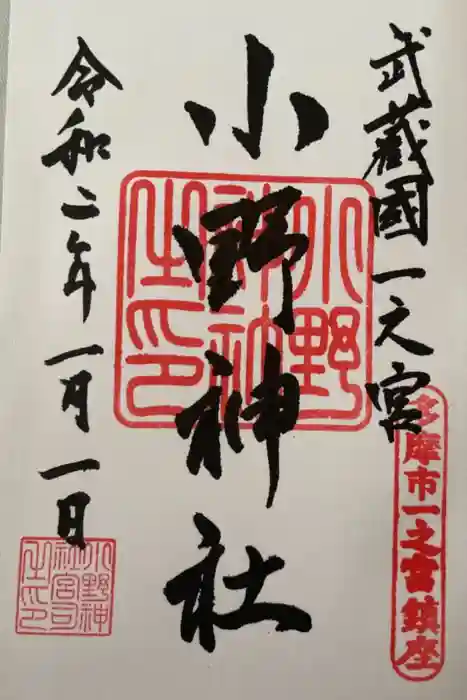 武蔵國一之宮
多摩市一之宮鎮座
小野神社
小野神社之印
令和二年一月一日
小野神社宮司之印